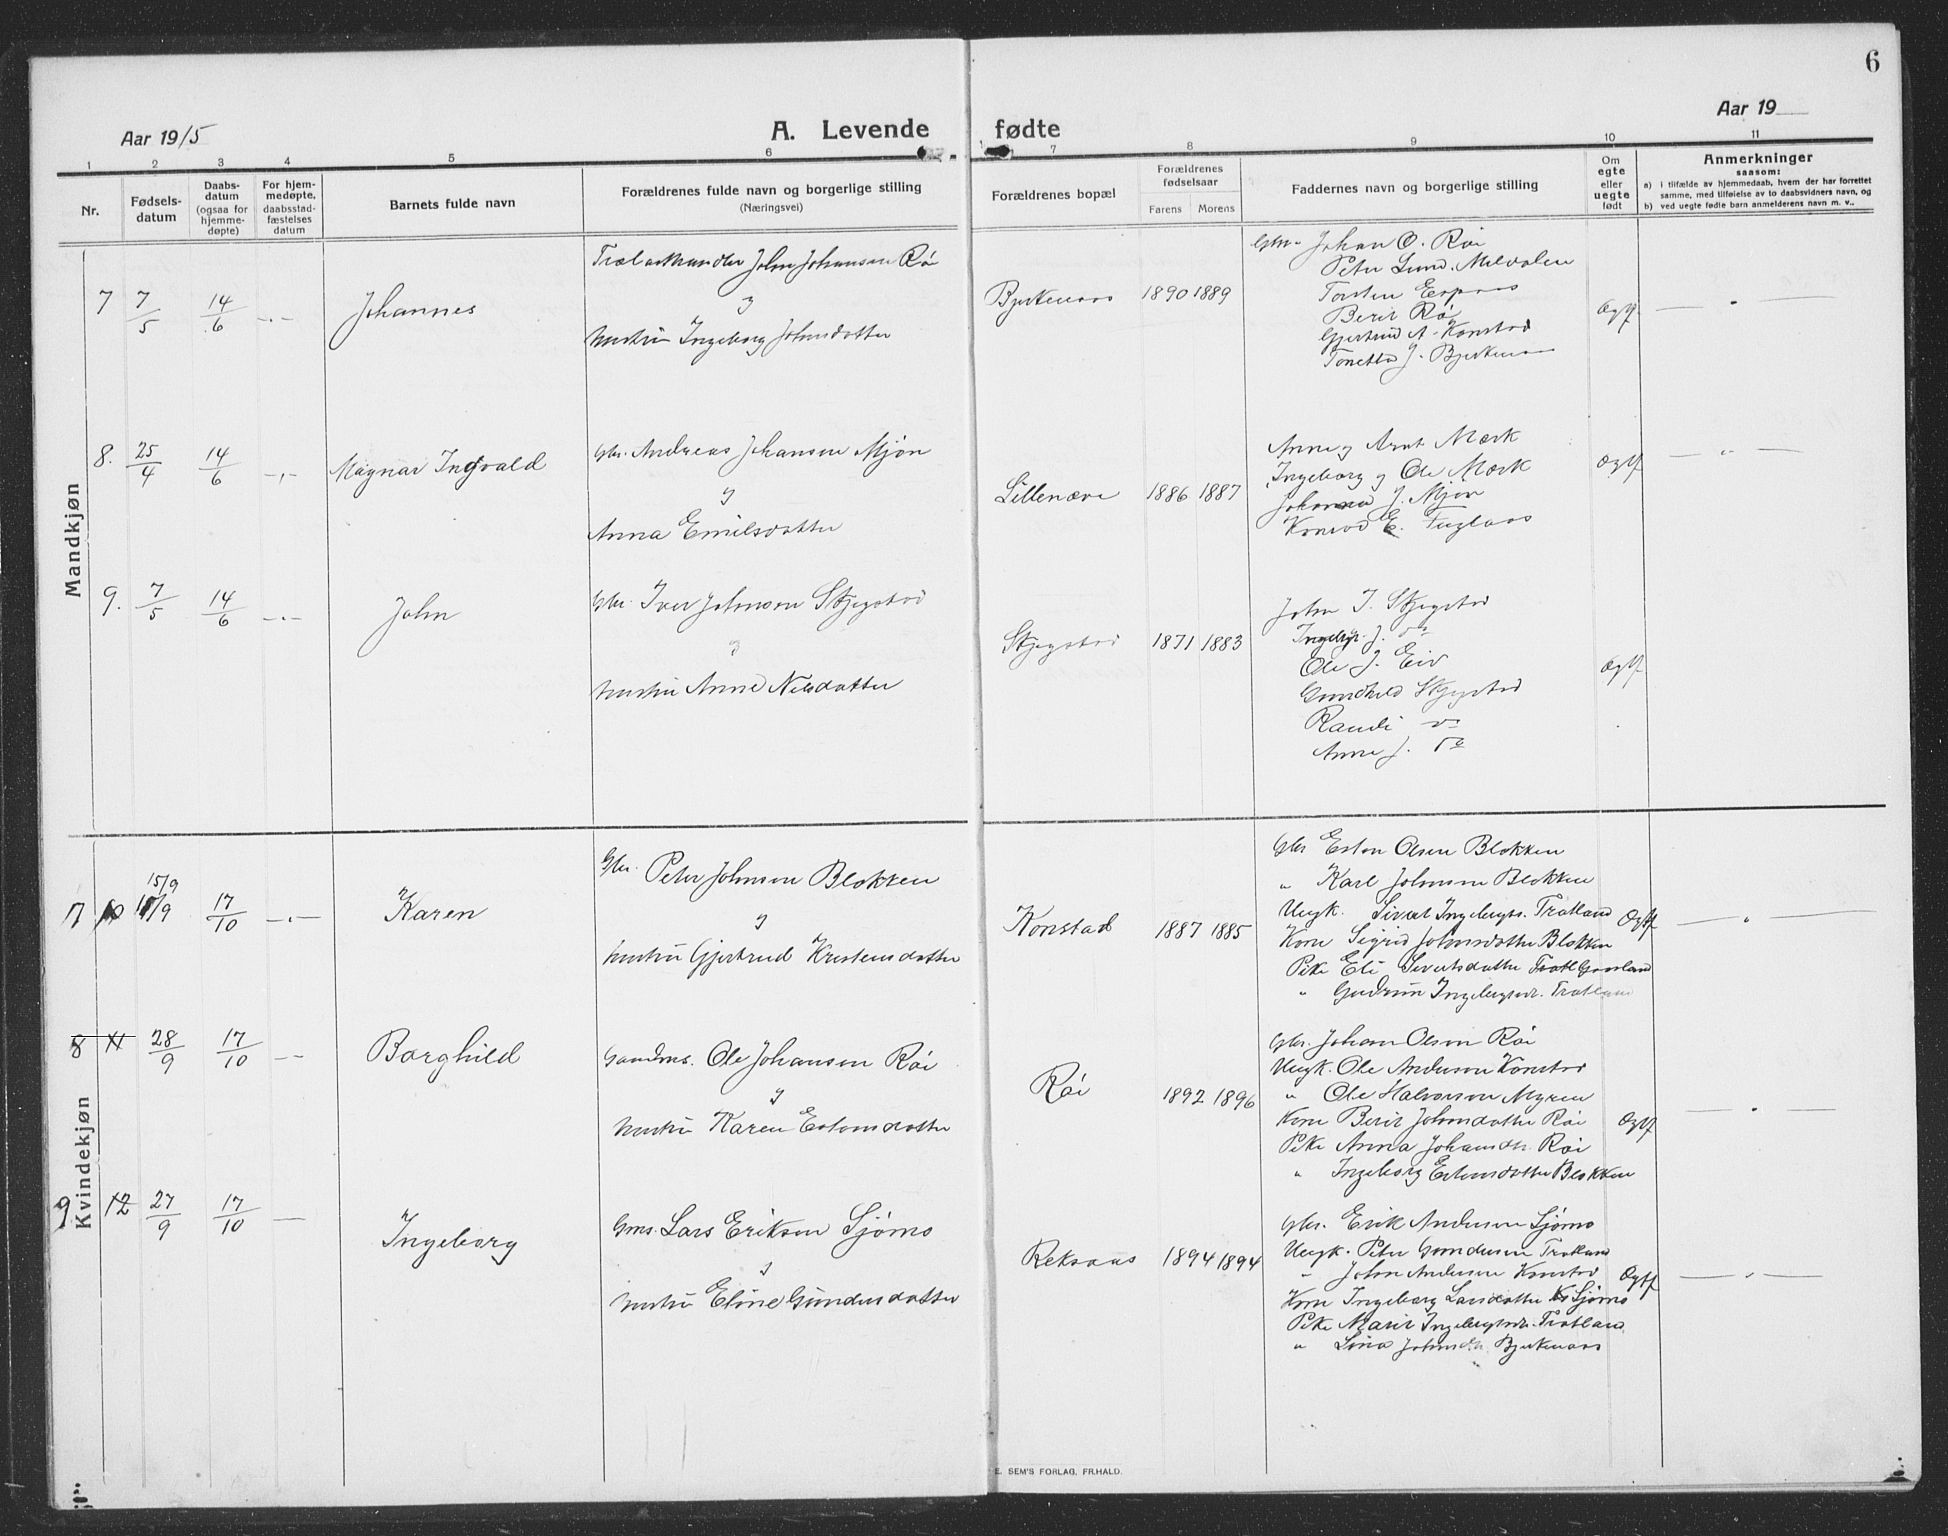 6
Aar 1915
A. Levende fødte
Aar 19
1 2 3 4 5 6 7 8 9 10 11
Nr.
Fødsels-
datum
Daabs-
datum
(ogsaa for
hjemme-
døpte)
For hjem-
medøpte,
daabsstad-
fæstelses
datum
Barnets fulde navn
Forældrenes fulde navn og borgerlige stilling
(Næringsvei)
Forældrenes bopæl
Forældrenes
fødselsaar
Farens Morens
Faddernes navn og borgerlig stilling
Om
egte
eller
uegte
født
Anmerkninger
saasom:
a) i tilfælde av hjemmedaab, hvem der har forrettet
samme, med tilføielse av to daabsvidners navn, og
b) ved uegte fødte barn anmelderens navn m. v..
Mandkjøn
7 7/5 14/6 -.- Johannes
Trælasthandler John Johansen Røi
og
hustru Ingeborg Johnsdatter
Bjerkenaas 1890 1889
Gbr. Johan O. Røi
Peter Lund. Meldalen
Torsten Espaas
Berit Røi
Gjertrud A. Konstad
Tonetta J. Bjerkenaas
Ægtf
8. 25/4 14/6 -.- Magnar Ingvald
Gbr. Andreas Johansen Mjøn
og
Anna Emilsdatter
Lillenæve 1886 1887
Anne og Arnt Mærk
Ingeborg og Ole Mærk
Johanna J. Mjøn
Konrad E. Fuglaas
Ægtf
9. 7/5 14/6 -.- John
Gbr. Iver Johnson Skjegstad
og
hustru Anne Nilsdatter
Skjegstad 1871 1883
John I. Skjegstad
Ingebjr. J. do
Ole J. Eid
Gundhild Skjegstad
Randi do
Anne J. do
Ægtf
Kvindekjøn
7 10 15/9 17/10 -.- Karen
Gbr. Peter Johnson Blokken
og
hustru Gjertrud Kristensdatter
Konstad 1887 1885
Gbr Eston Olsen Blokken
" Karl Johnson Blokken
Ungk. Sivert Ingebrigts. Trotland
Kone Sigrid Johnsdatter Blokken
Pike Eli Sivertsdatter
" Gudrun Ingebrigtsdr. Trotland
Ægtf
8 11 28/9 17/10 -- Borghild
Gaardms. Ole Johansen Røi
og
hustru Karen Estensdatter
Røi 1892 1896
Gbr. Johan Olsen Røi
Ungk. Ole Andersen Konstad
" Ole Halvorson Myren
Kone Berit Johnsdatter Røi
Pike Anna Johansdr. Røi
" Ingeborg Estensdatter Blokken
Ægtf
9. 12 27/9 17/10 — Ingeborg
Gms. Lars Eriksen Sjømo
og
hustru Eline Gundersdatter
Reksaas 1894 1894
Gbr. Erik Andersen Sjømo
Ungk. Peter Gundersen Trotland
" John Andersen Konstad
Kone Ingeborg Larsdatter Sjømo
Pike Marit Ingebrigtsdr. Trotland
" Lina Johnsdr. Bjerkenaas
Ægtf
E. SEM'S FORLAG, FR.HALD.